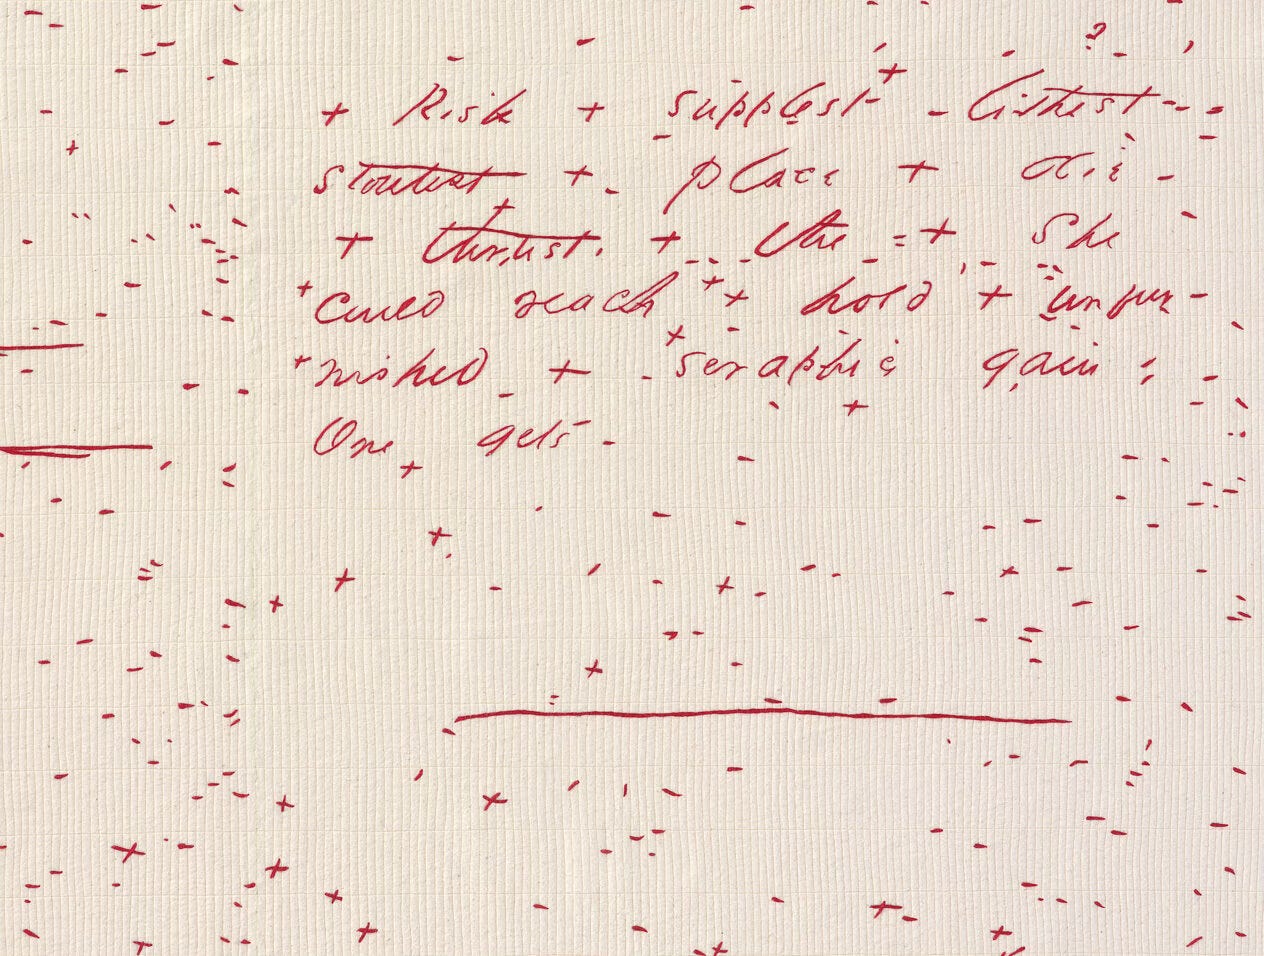 + Risk + supplest + - lithest - -
stoutest + - place + die -
+ thrust. + the = + She
+ could reach + + hold + unfur-
+ nished + + seraphic gain,
One gets -